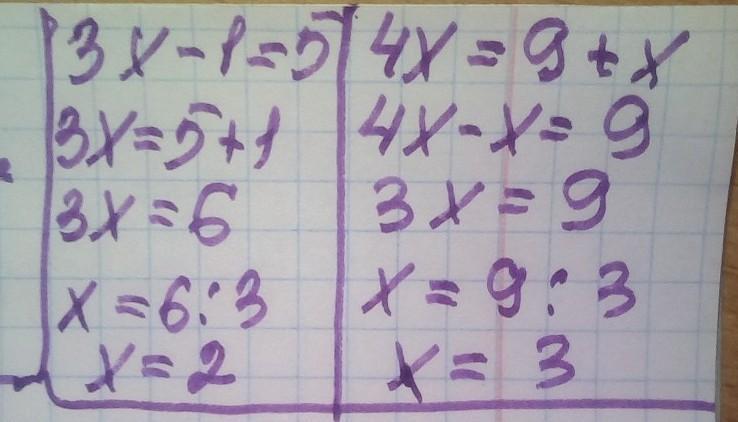 3x-1=5
3x=5+1
3x=6
x=6:3
x=2
4x=9+x
4x-x=9
3x=9
x=9:3
x=3